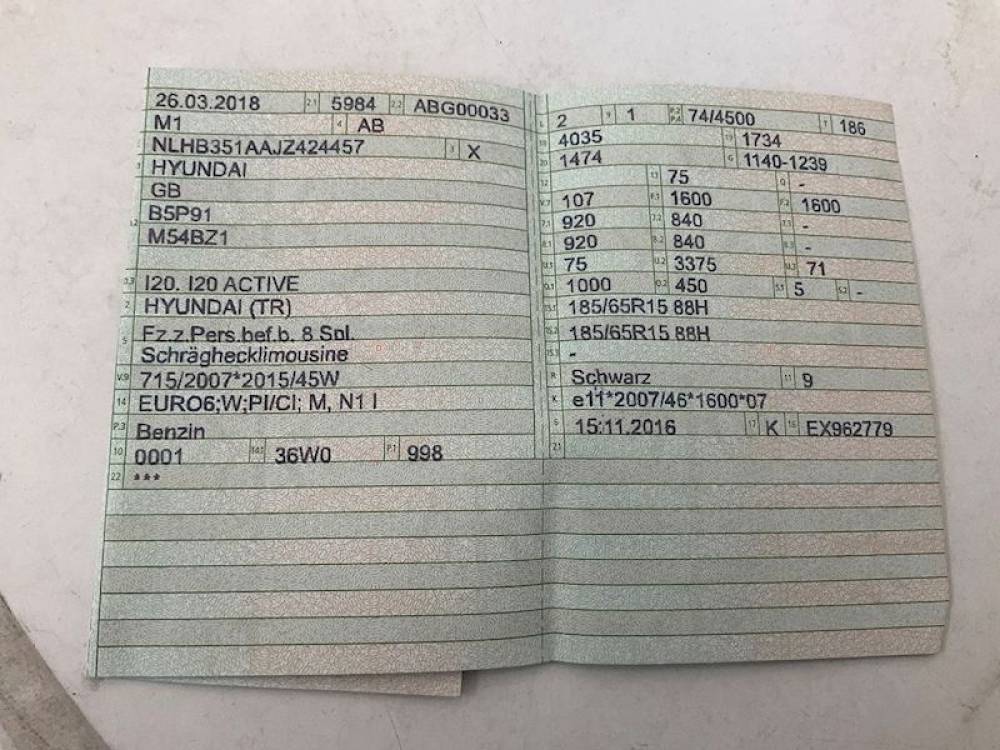 26.03.2018 2.1 5984 2.2 ABG00033
M1 4 AB
NLHB351AAJZ424457 3 X
HYUNDAI
GB
B5P91
M54BZ1
D.3 I20. I20 ACTIVE
2 HYUNDAI (TR)
5 Fz.z.Pers.bef.b. 8 Spl.
Schräghecklimousine
V.9 715/2007*2015/45W
14 EURO6;W;PI/CI; M, N1 I
P.3 Benzin
10 0001 14.1 36W0 P.1 998
22 ***
L 2 9 1 P.2 P.4 74/4500 T 186
18 4035 19 1734
20 1474 G 1140-1239
12 13 75 Q -
V.7 107 F.1 1600 F.2 1600
7.1 920 7.2 840 7.3 -
8.1 920 8.2 840 8.3 -
U.1 75 U.2 3375 U.3 71
O.1 1000 O.2 450 S.1 5 S.2 -
15.1 185/65R15 88H
15.2 185/65R15 88H
15.3 -
R Schwarz 11 9
K e11*2007/46*1600*07
6 15.11.2016 17 K 16 EX962779
21